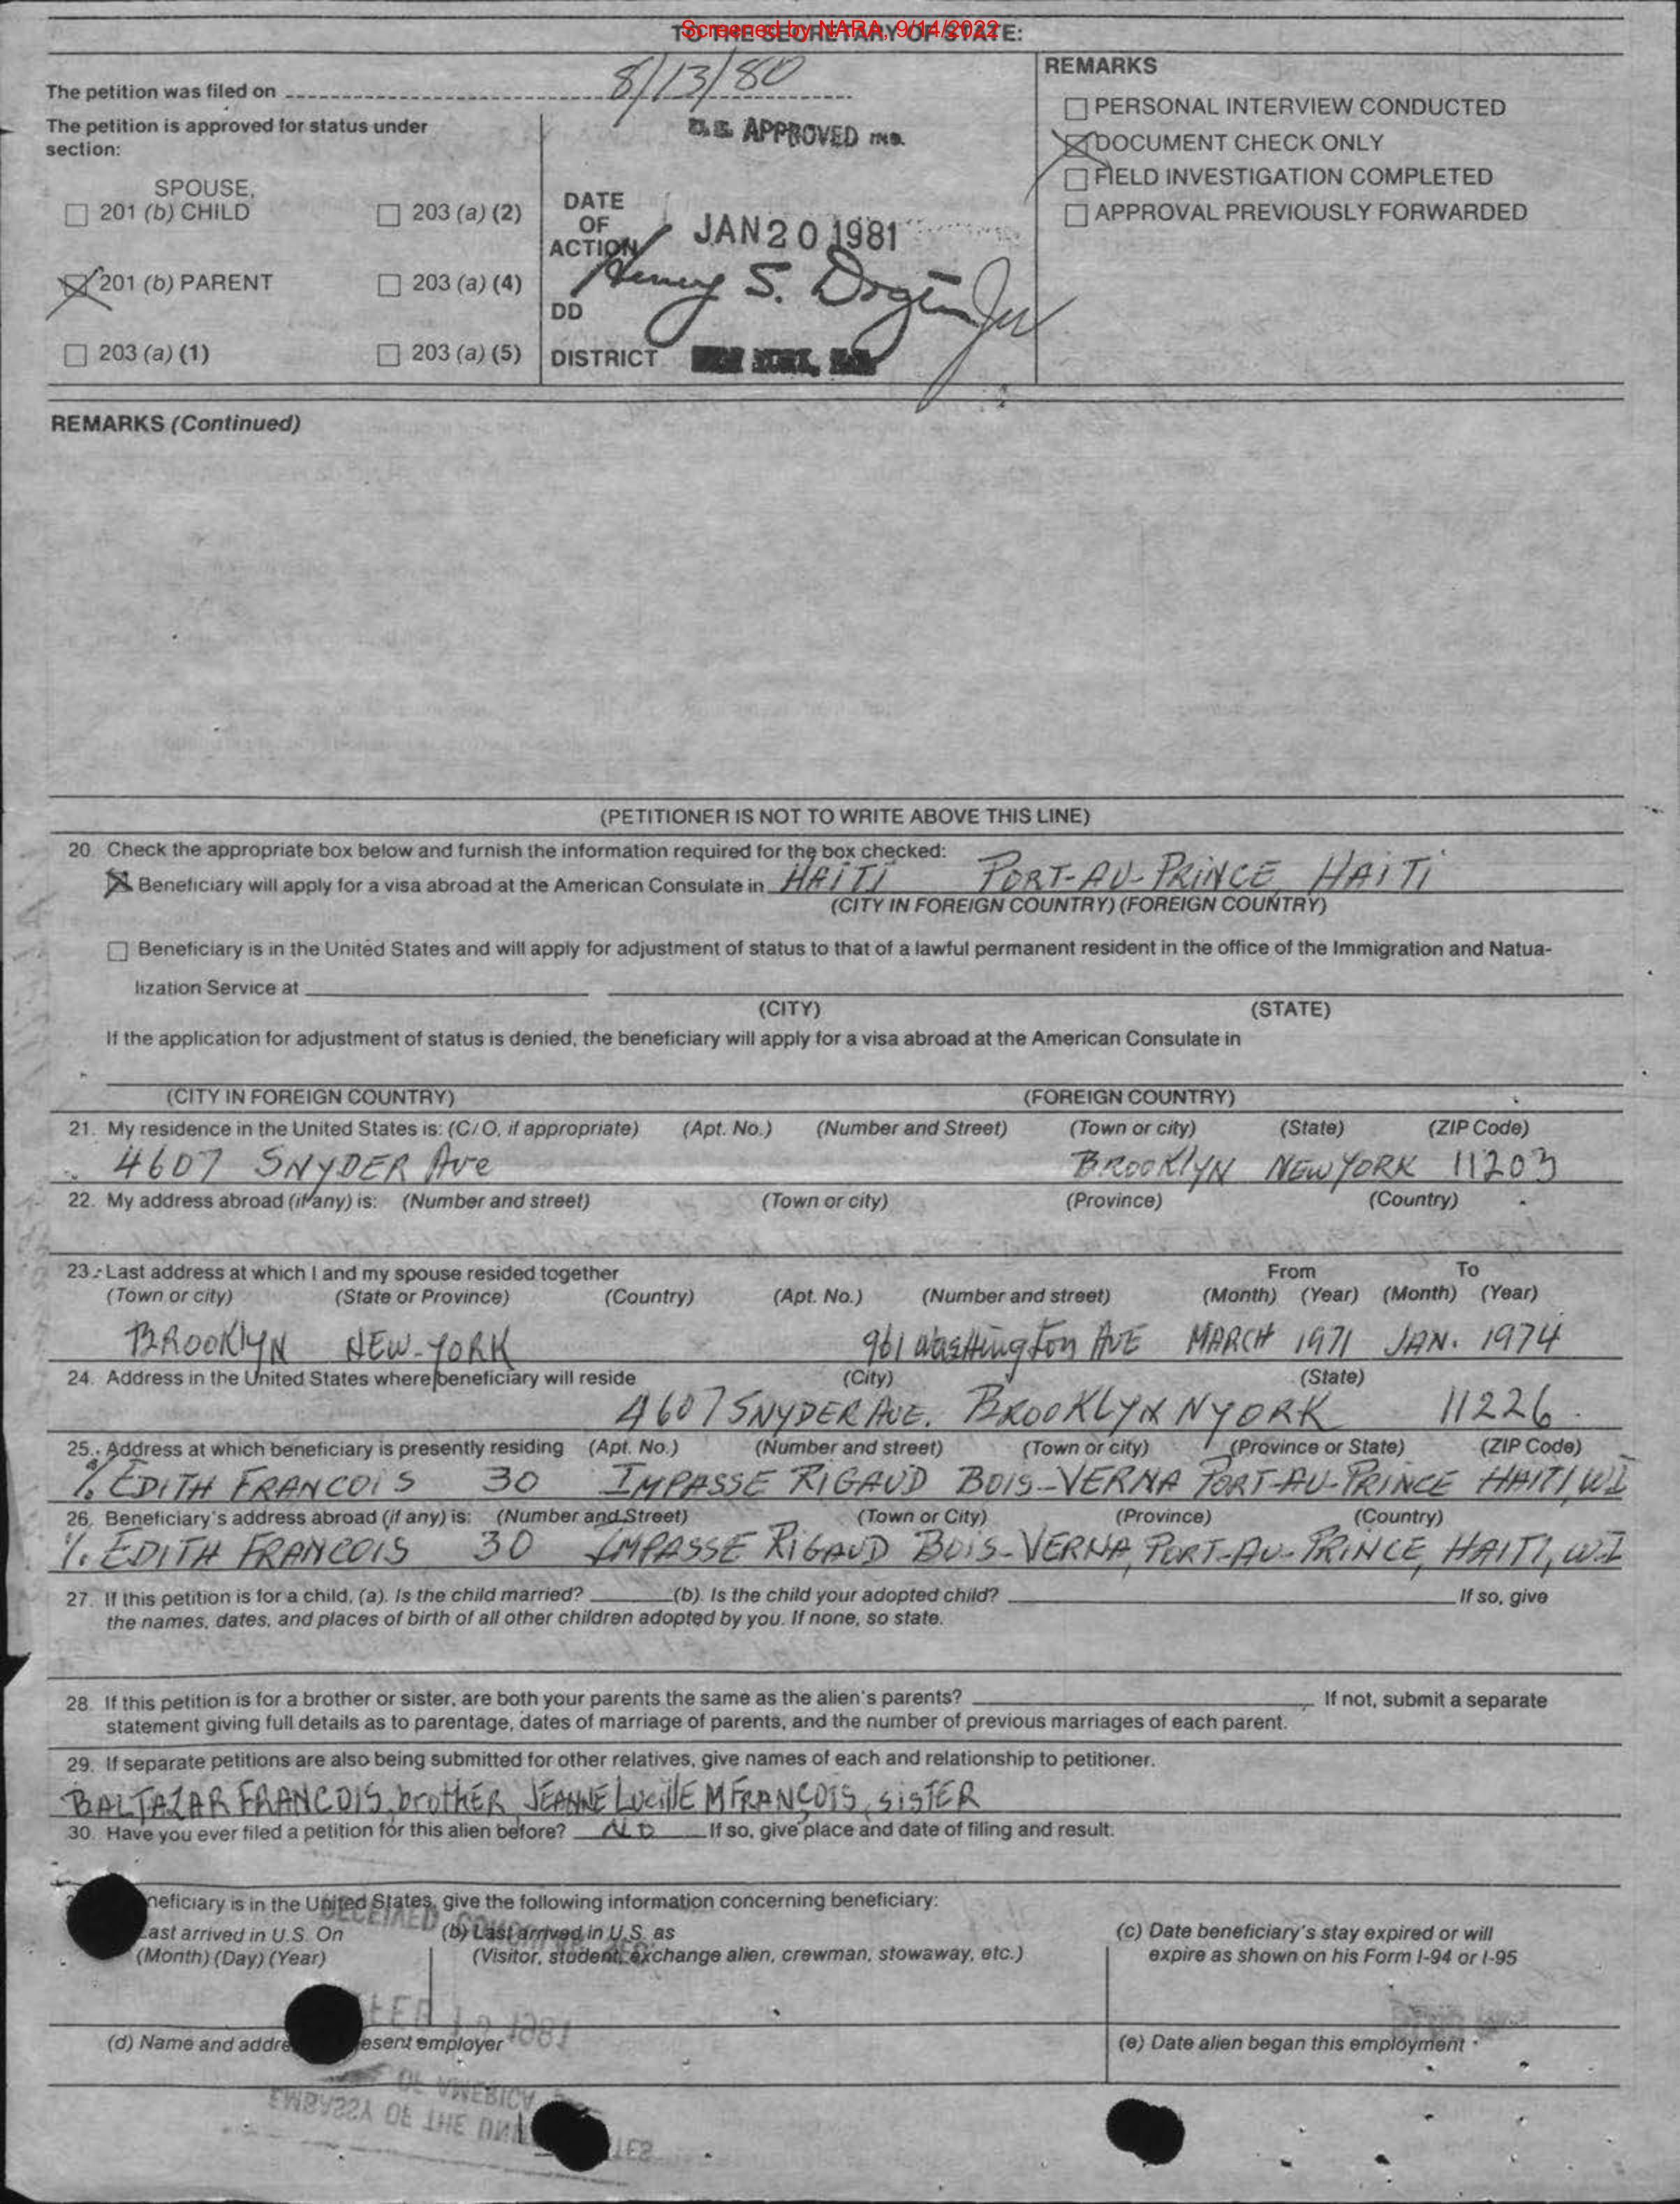 Screened by NARA, 9/14/2022
TO THE SECRETARY OF STATE:
The petition was filed on 8/13/80
The petition is approved for status under
section:
SPOUSE,
201 (b) CHILD
203 (a) (2)
201 (b) PARENT
203 (a) (4)
203 (a) (1)
203 (a) (5)
APPROVED
DATE
OF
ACTION
JAN 20 1981
Henry S. Dogin
DD
DISTRICT
REMARKS
PERSONAL INTERVIEW CONDUCTED
DOCUMENT CHECK ONLY
FIELD INVESTIGATION COMPLETED
APPROVAL PREVIOUSLY FORWARDED
REMARKS (Continued)
(PETITIONER IS NOT TO WRITE ABOVE THIS LINE)
20. Check the appropriate box below and furnish the information required for the box checked:
Beneficiary will apply for a visa abroad at the American Consulate in HAITI PORT-AU-PRINCE, HAITI
(CITY IN FOREIGN COUNTRY) (FOREIGN COUNTRY)
Beneficiary is in the United States and will apply for adjustment of status to that of a lawful permanent resident in the office of the Immigration and Natua-
lization Service at
(CITY) (STATE)
If the application for adjustment of status is denied, the beneficiary will apply for a visa abroad at the American Consulate in
(CITY IN FOREIGN COUNTRY) (FOREIGN COUNTRY)
21. My residence in the United States is: (C/O, if appropriate) (Apt. No.) (Number and Street) (Town or city) (State) (ZIP Code)
4607 SNYDER Ave BROOKlYN NEW YORK 11203
22. My address abroad (if any) is: (Number and street) (Town or city) (Province) (Country)
23. Last address at which I and my spouse resided together From To
(Town or city) (State or Province) (Country) (Apt. No.) (Number and street) (Month) (Year) (Month) (Year)
BROOKlYN NEW-YORK 961 Washington AVE MARCH 1971 JAN. 1974
24. Address in the United States where beneficiary will reside (City) (State)
4607 SNYDER AVE. BROOKLYN NYORK 11226
25. Address at which beneficiary is presently residing (Apt. No.) (Number and street) (Town or city) (Province or State) (ZIP Code)
%. EDITH FRANCOIS 30 IMPASSE RIGAUD BOIS-VERNA PORT-AU-PRINCE HAITI, WI
26. Beneficiary's address abroad (if any) is: (Number and Street) (Town or City) (Province) (Country)
%. EDITH FRANCOIS 30 IMPASSE RIGAUD BOIS-VERNA, PORT-AU-PRINCE, HAITI, W.I
27. If this petition is for a child, (a). Is the child married? (b). Is the child your adopted child? If so, give
the names, dates, and places of birth of all other children adopted by you. If none, so state.
28. If this petition is for a brother or sister, are both your parents the same as the alien's parents? If not, submit a separate
statement giving full details as to parentage, dates of marriage of parents, and the number of previous marriages of each parent.
29. If separate petitions are also being submitted for other relatives, give names of each and relationship to petitioner.
BALTAZAR FRANCOIS, brother JEANNE LUCIllE M FRANÇOIS, SISTER
30. Have you ever filed a petition for this alien before? NO If so, give place and date of filing and result.
neficiary is in the United States, give the following information concerning beneficiary:
ast arrived in U.S. On (b) Last arrived in U.S. as (c) Date beneficiary's stay expired or will
(Month) (Day) (Year) (Visitor, student, exchange alien, crewman, stowaway, etc.) expire as shown on his Form I-94 or I-95
RECEIVED
FEB 1981
(d) Name and addre esent employer (e) Date alien began this employment
OF AMERICA
EMBASSY OF THE UNI TES